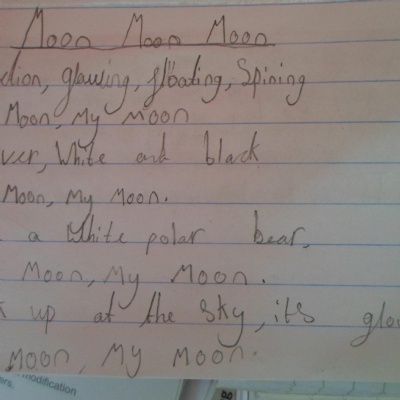 Moon Moon Moon
glowing, floating, Spining
Moon, My moon
White and black
Moon, My Moon.
a White polar bear,
Moon, My Moon.
up at the sky, it's
Moon, My Moon.
modification